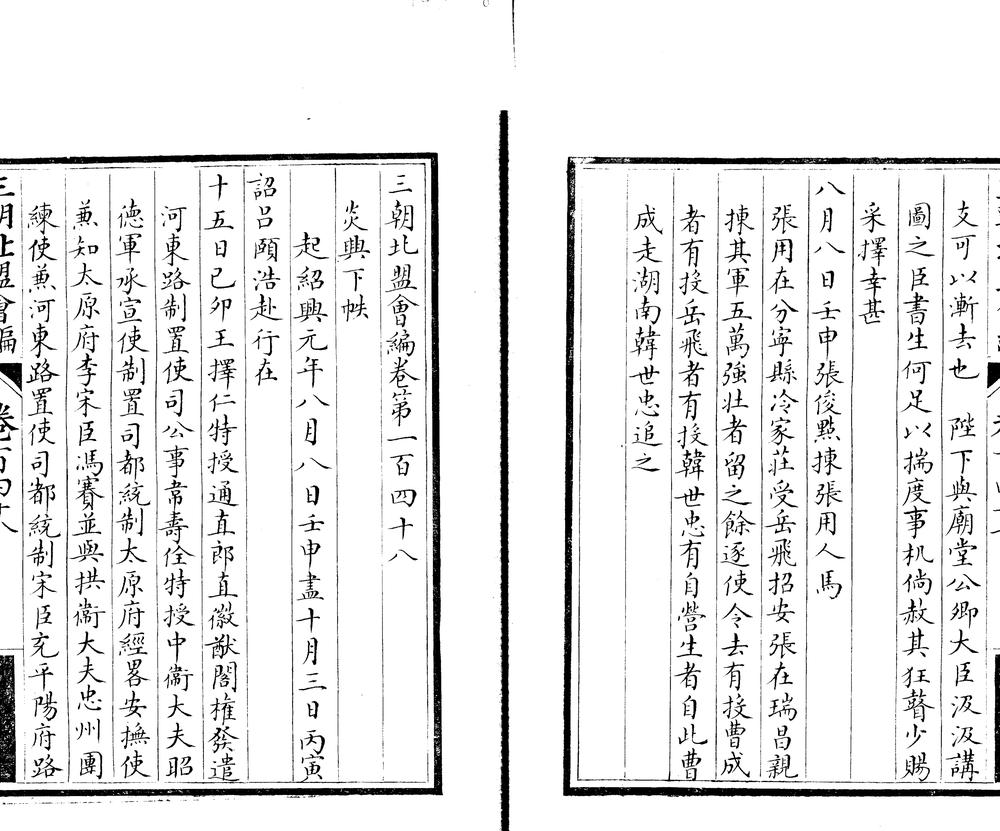 支可以漸去也　陛下與廟堂公卿大臣汲汲講
圖之臣書生何足以揣度事机倘赦其狂瞽少賜
采擇幸甚
八月八日壬申張俊點揀張用人馬
張用在分寧縣冷家莊受岳飛招安張在瑞昌親
揀其軍五萬強壯者留之餘逐使令去有投曹成
者有投岳飛者有投韓世忠有自營生者自此曹
成走湖南韓世忠追之
三朝北盟會編卷第一百四十八
炎興下帙
起紹興元年八月八日壬申盡十月三日丙寅
詔呂頤浩赴行在
十五日己卯王擇仁特授通直郎直徽猷閣權發遣
河東路制置使司公事韋壽佺特授中衞大夫昭
德軍承宣使制置司都統制太原府經畧安撫使
兼知太原府李宋臣馮賽並與拱衞大夫忠州團
練使兼河東路置使司都統制宋臣充平陽府路
三朝北盟會編　卷一百四十八